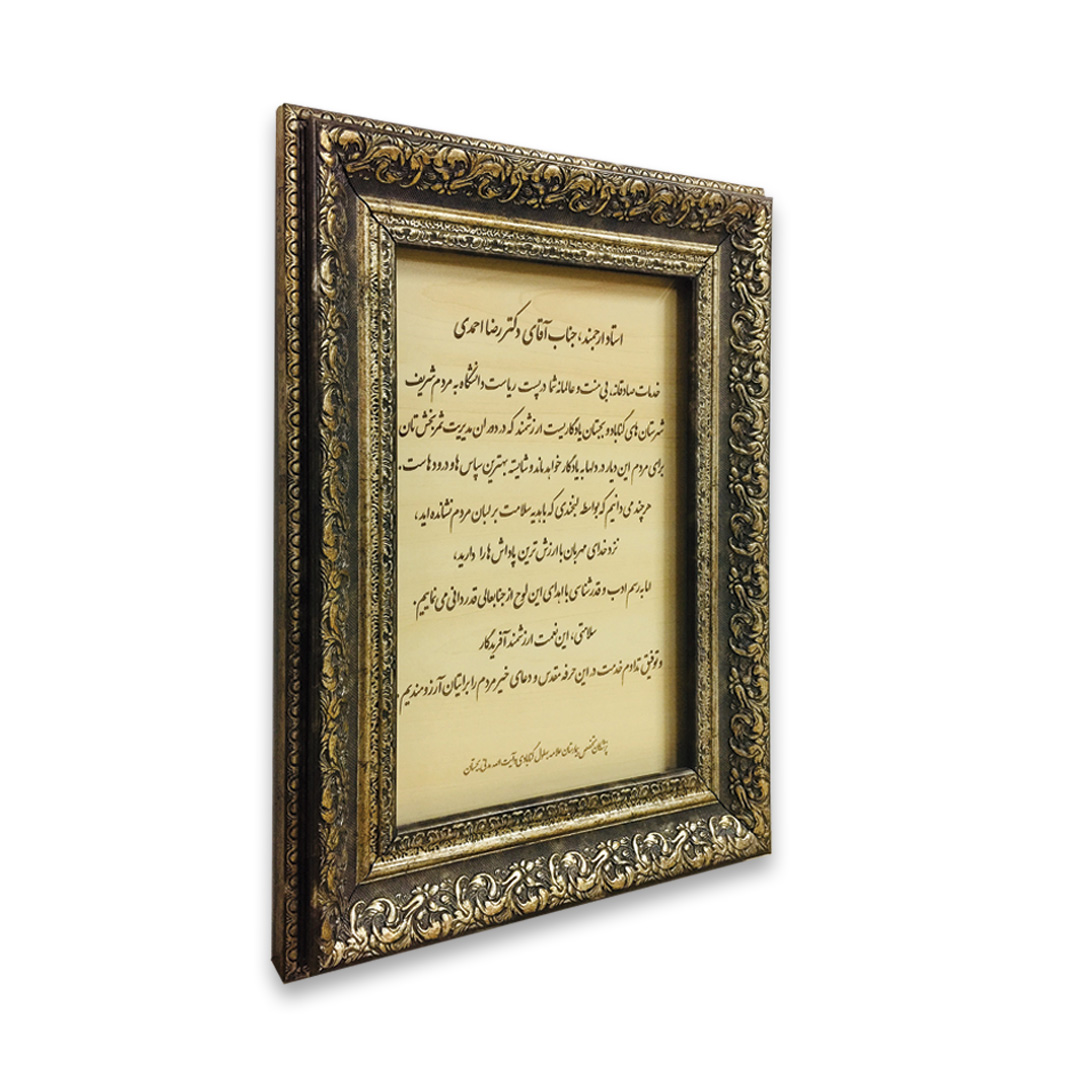 استاد ارجمند، جناب آقای دکتر رضا احمدی
خدمات صادقانه، بی منت و عالمانه شما در پست ریاست دانشگاه به مردم شریف
شهرستان های گناباد و بجستان یادگاریست ارزشمند که در دوران مدیریت ثمربخش تان
برای مردم این دیار در دلها به یادگار خواهد ماند و شایسته بهترین سپاس ها و درود هاست.
هر چند می دانیم که بواسطه لبخندی که با هدیه سلامت بر لبان مردم نشانده اید،
نزد خدای مهربان با ارزش ترین پاداش ها را دارید،
اما به رسم ادب و قدرشناسی با اهدای این لوح از جنابعالی قدردانی می نماییم.
سلامتی، این نعمت ارزشمند آفریدگار
و توفیق تداوم خدمت در این حرفه مقدس و دعای خیر مردم را برایتان آرزومندیم.
پزشکان متخصص بیمارستان علامه بهلول گنابادی و آیت الله مدنی بجستان